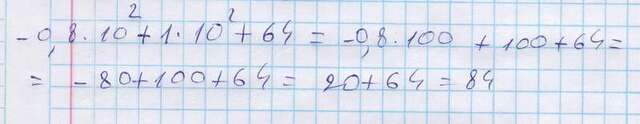 -0,8·10²+1·10²+64 = -0,8·100 +100+64=
= -80+100+64= 20+64=84